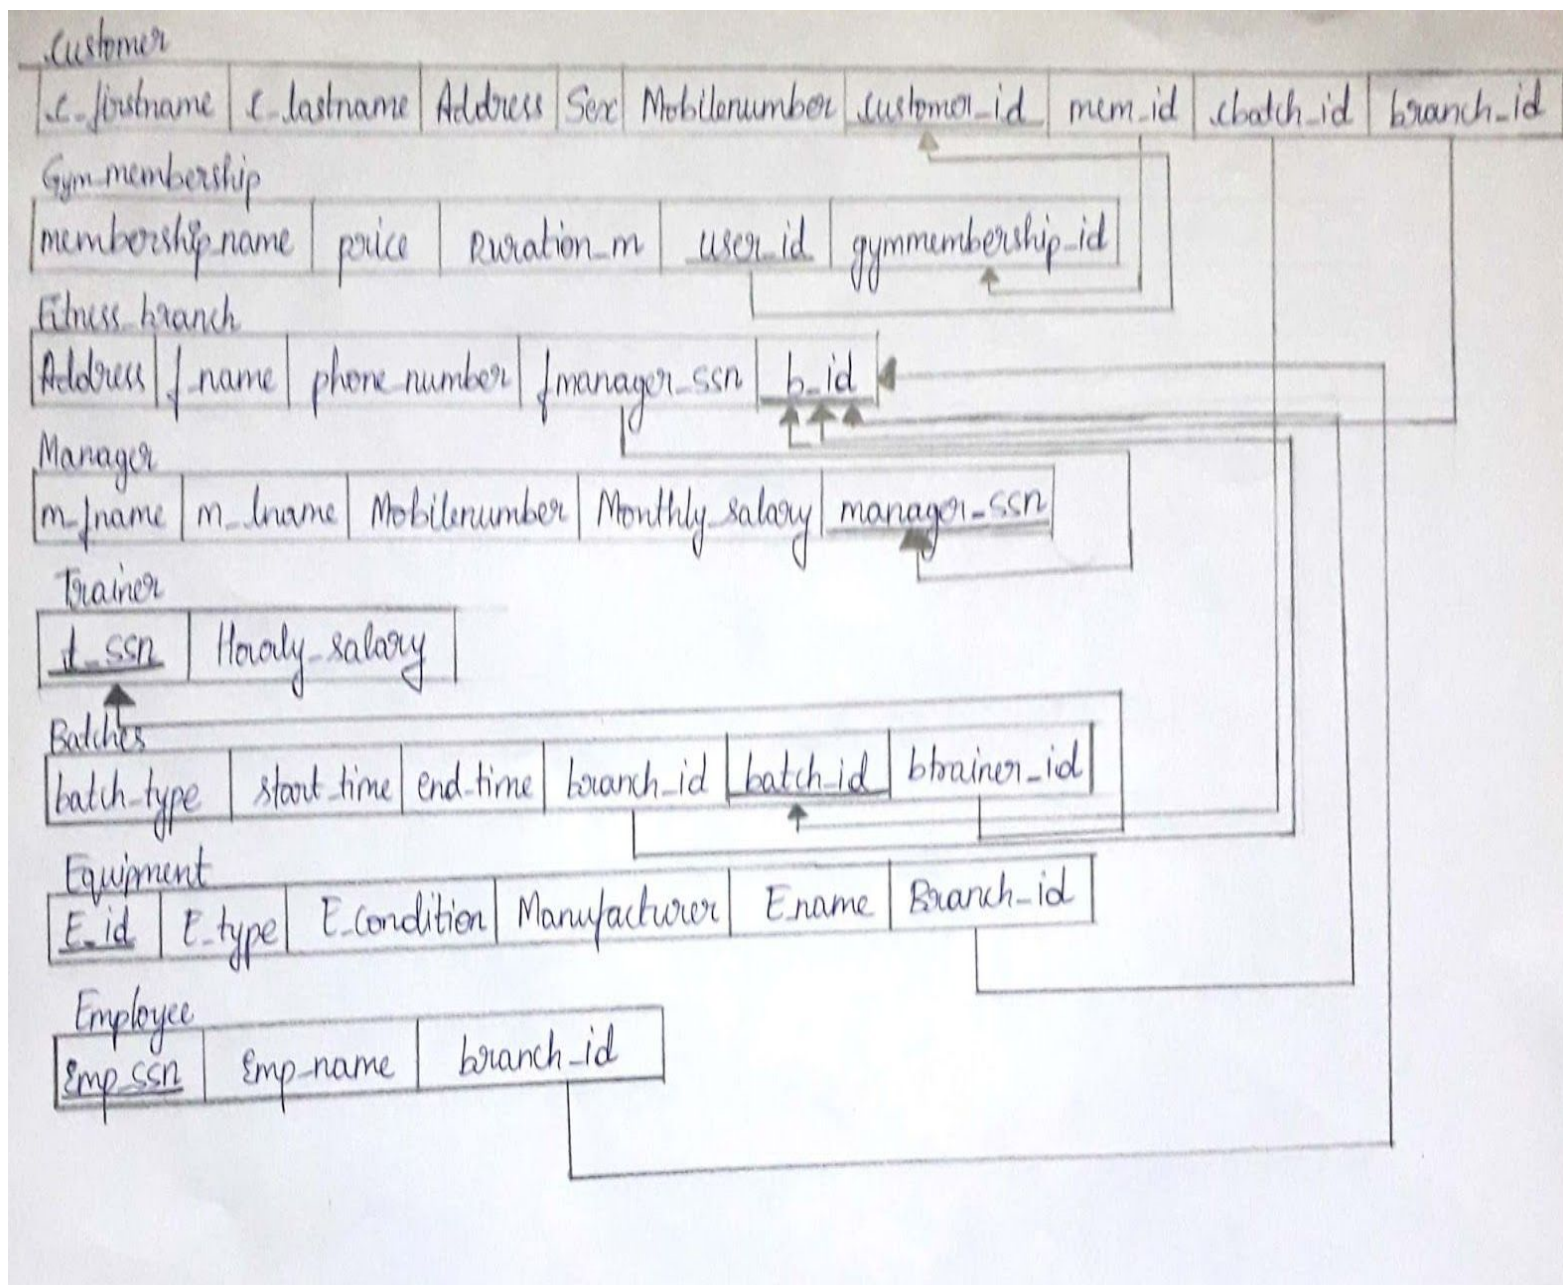 Customer
c_firstname c_lastname Address Sex Mobilenumber customer_id mem_id cbatch_id branch_id
Gym_membership
membership_name price Duration_m user_id gymmembership_id
Fitness_branch
Address f_name phone_number fmanager_ssn b_id
Manager
m_fname m_lname Mobilenumber Monthly_salary manager_ssn
Trainer
t_ssn Hourly_salary
Batches
batch_type start_time end_time branch_id batch_id btrainer_id
Equipment
E_id E_type E_Condition Manufacturer E_name Branch_id
Employee
Emp_ssn Emp_name branch_id